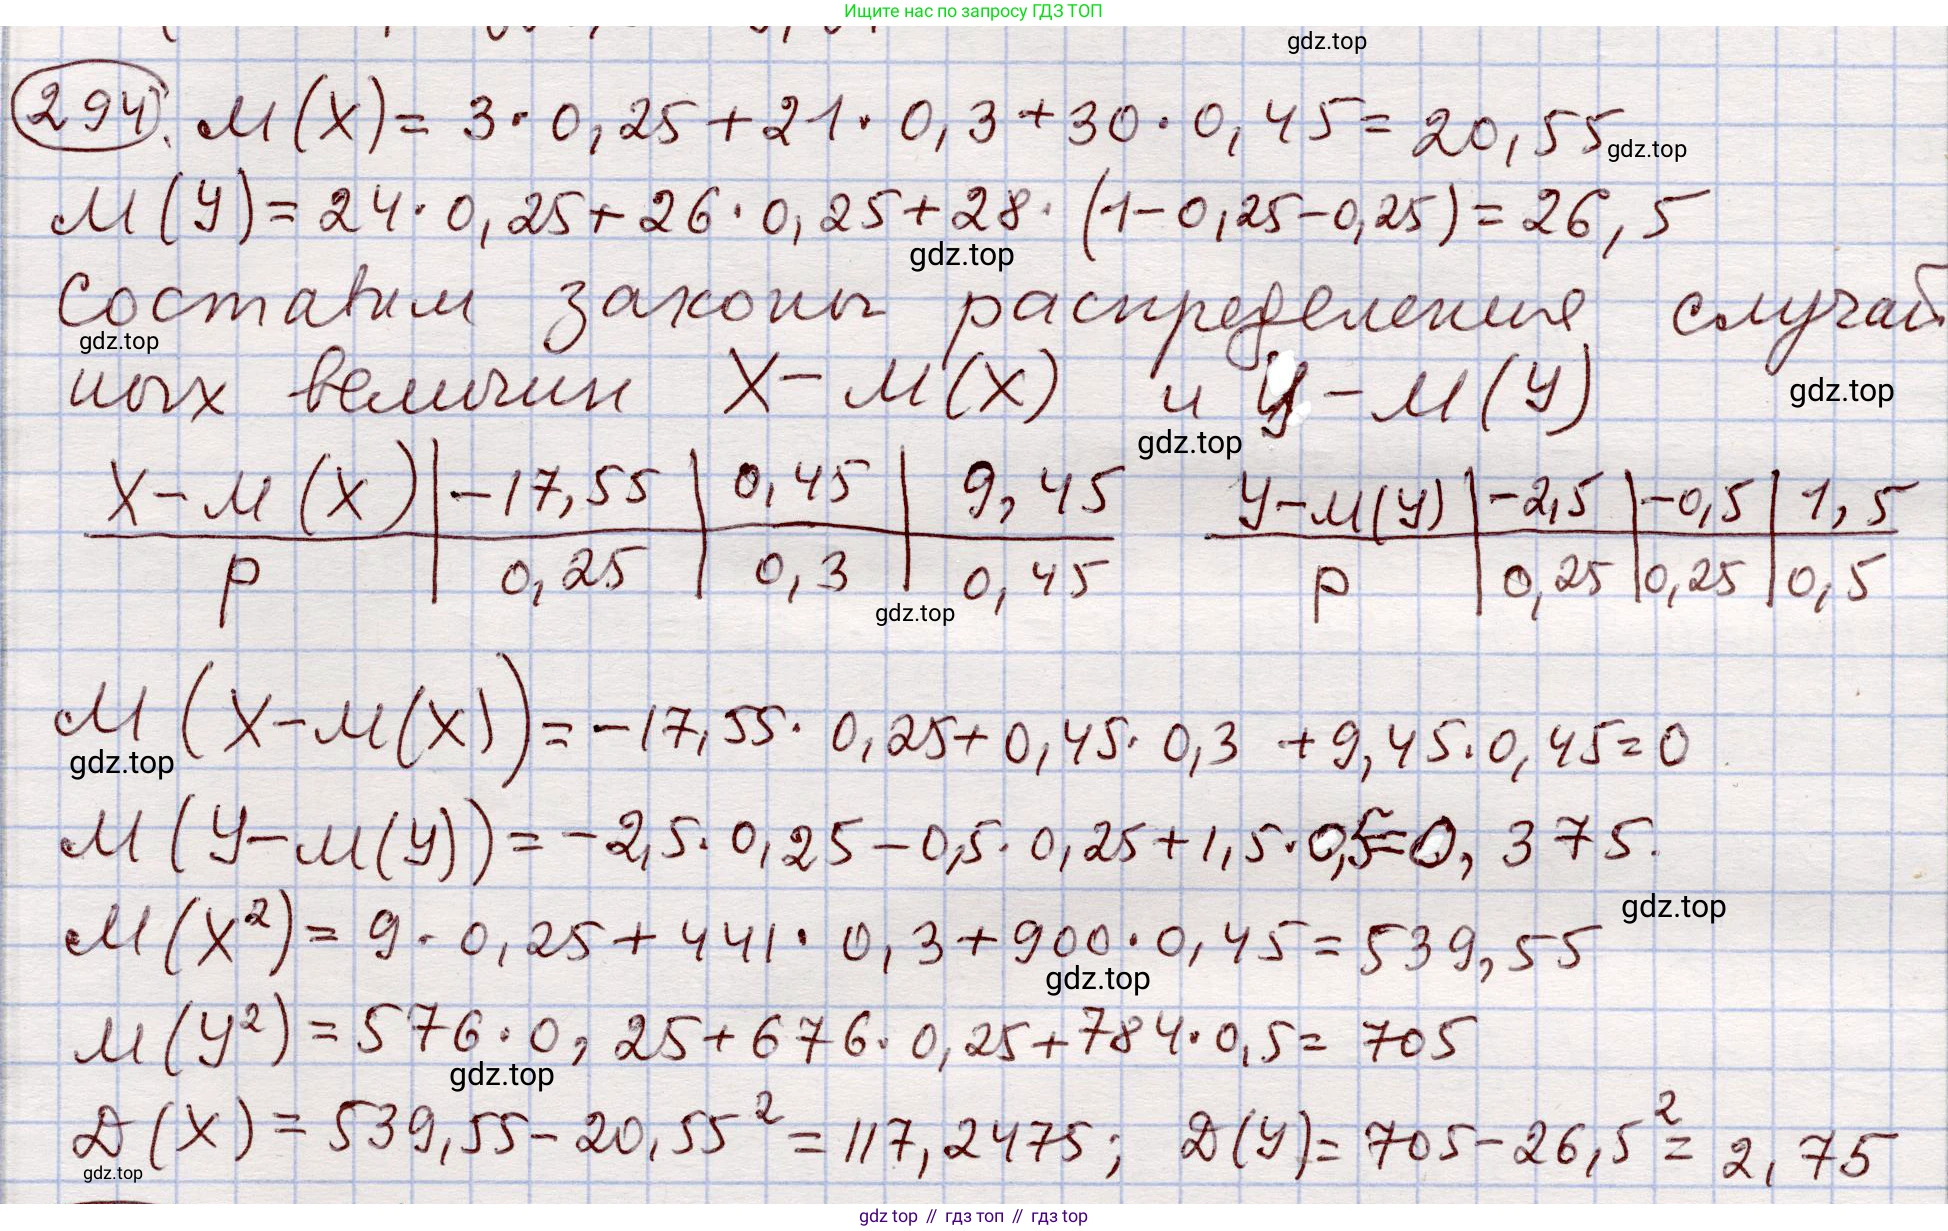 Ищите нас по запросу ГДЗ ТОП
gdz.top
294. М(X) = 3 · 0,25 + 21 · 0,3 + 30 · 0,45 = 20,55
gdz.top
М(У) = 24 · 0,25 + 26 · 0,25 + 28 · (1 − 0,25 − 0,25) = 26,5
gdz.top
Составим законы распределения случай
gdz.top
ных величин X − М(X) и У − М(У)
gdz.top
gdz.top
X − М(X) | −17,55 | 0,45 | 9,45
р | 0,25 | 0,3 | 0,45
У − М(У) | −2,5 | −0,5 | 1,5
р | 0,25 | 0,25 | 0,5
gdz.top
М(X − М(X)) = −17,55 · 0,25 + 0,45 · 0,3 + 9,45 · 0,45 = 0
gdz.top
М(У − М(У)) = −2,5 · 0,25 − 0,5 · 0,25 + 1,5 · 0,5 = 0,375.
gdz.top
М(X²) = 9 · 0,25 + 441 · 0,3 + 900 · 0,45 = 539,55
gdz.top
М(У²) = 576 · 0,25 + 676 · 0,25 + 784 · 0,5 = 705
gdz.top
D(X) = 539,55 − 20,55² = 117,2475; D(У) = 705 − 26,5² = 2,75
gdz.top
gdz top // гдз топ // гдз top